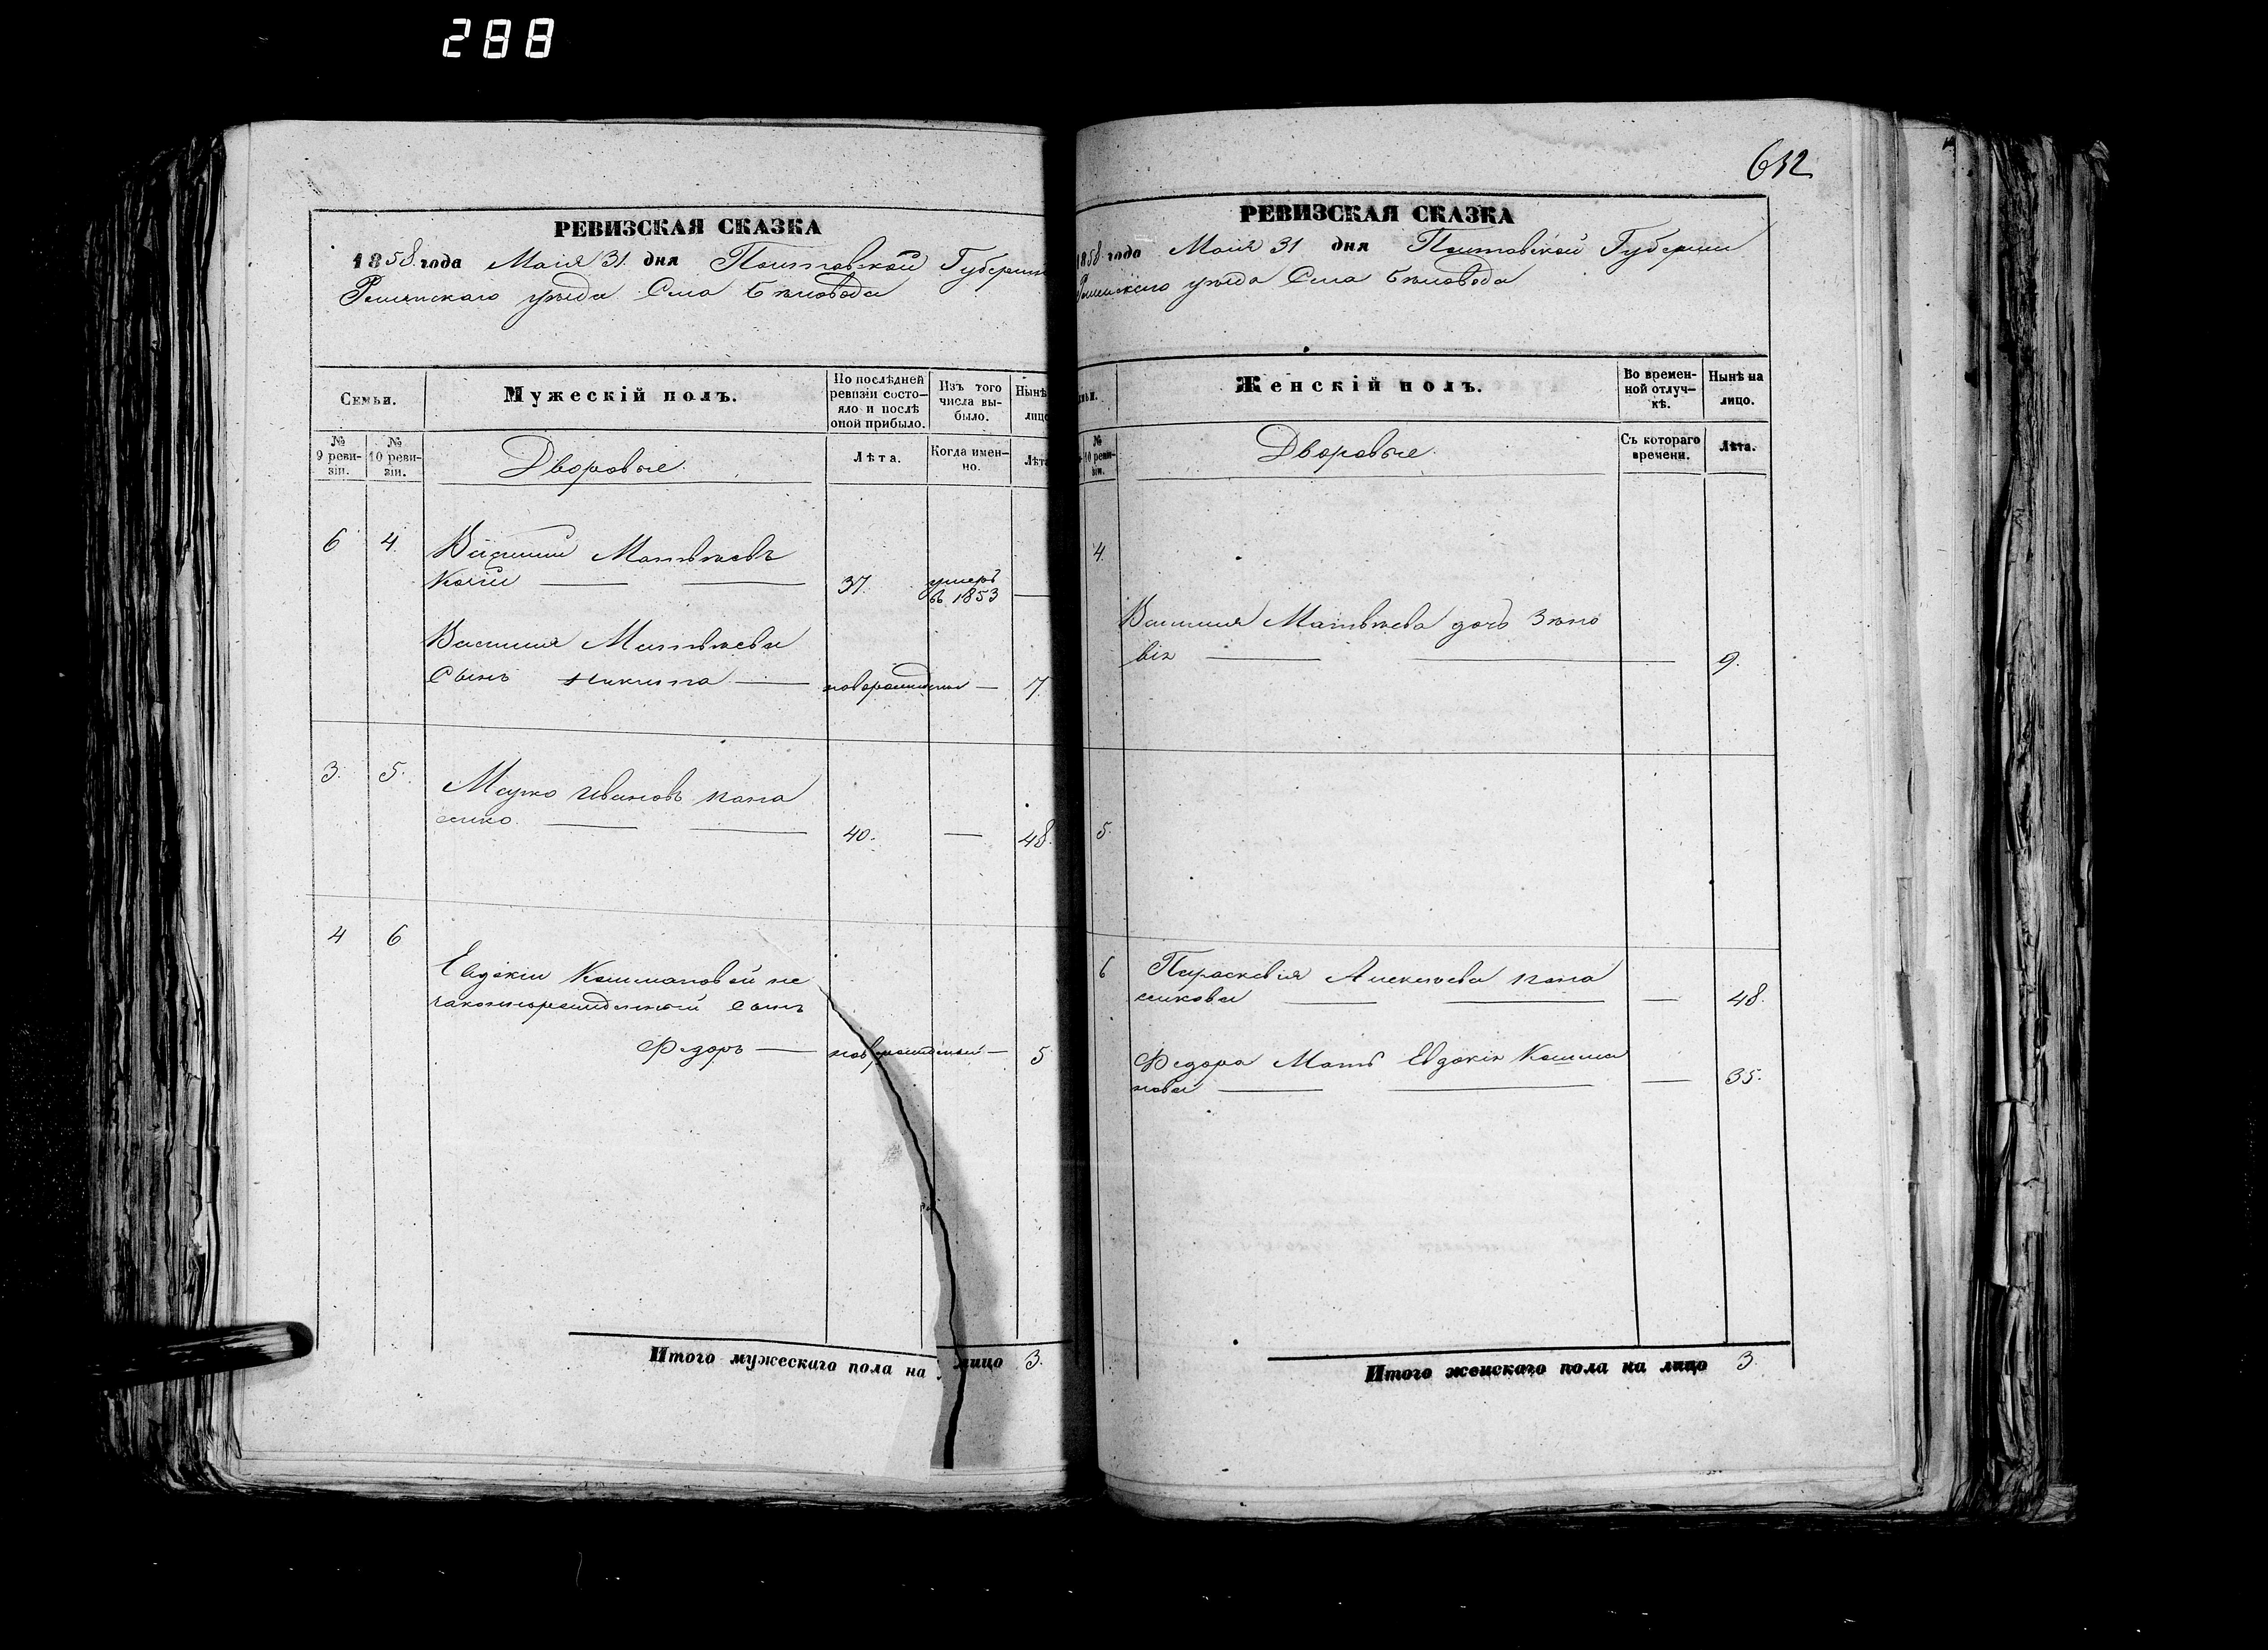 288
632
РЕВИЗСКАЯ СКАЗКА
1858. года Маія 31. дня Полтавской Губерніи
Роменскаго уѣзда Села Бѣловода
Семьи.
Мужескій полъ.
По послѣдней ревизіи состо-
яло и послѣ оной прибыло.
Изъ того числа вы-
было.
Нынѣ
лицо
№ 9 реви-
зіи.
№ 10 реви-
зіи.
Дворовые.
Лѣта.
Когда имен-
но.
Лѣта
6 4. Василій Матвѣевъ
37. умеръ
въ 1853 —
Василія Матвѣева
Сынъ Никита — новорожденъ — 7.
3. 5. Марко Ивановъ Пана
сенко — — 40. — 48.
4 6
Евдокіи Кошмановой не
законнорожденный сынъ
Федоръ — новорожденный — 5
Итого мужескаго пола на лицо 3.
РЕВИЗСКАЯ СКАЗКА
1858 года Маія 31 дня Полтавской Губерніи
Роменскаго уѣзда Села Бѣловода
Женскій полъ.
Во времен-
ной отлуч-
кѣ.
Нынѣ на
лицо.
№
10 реви-
зіи.
Дворовые.
Съ котораго
времени.
Лѣта.
4.
Василія Матвѣева дочь Зѣно
вія — — 9.
5.
6 Параскевія Алексѣева Пана
сенкова — — — 48.
Федора Мать Евдокія Кошма
нова — — — 35.
Итого женскаго пола на лицо 3.